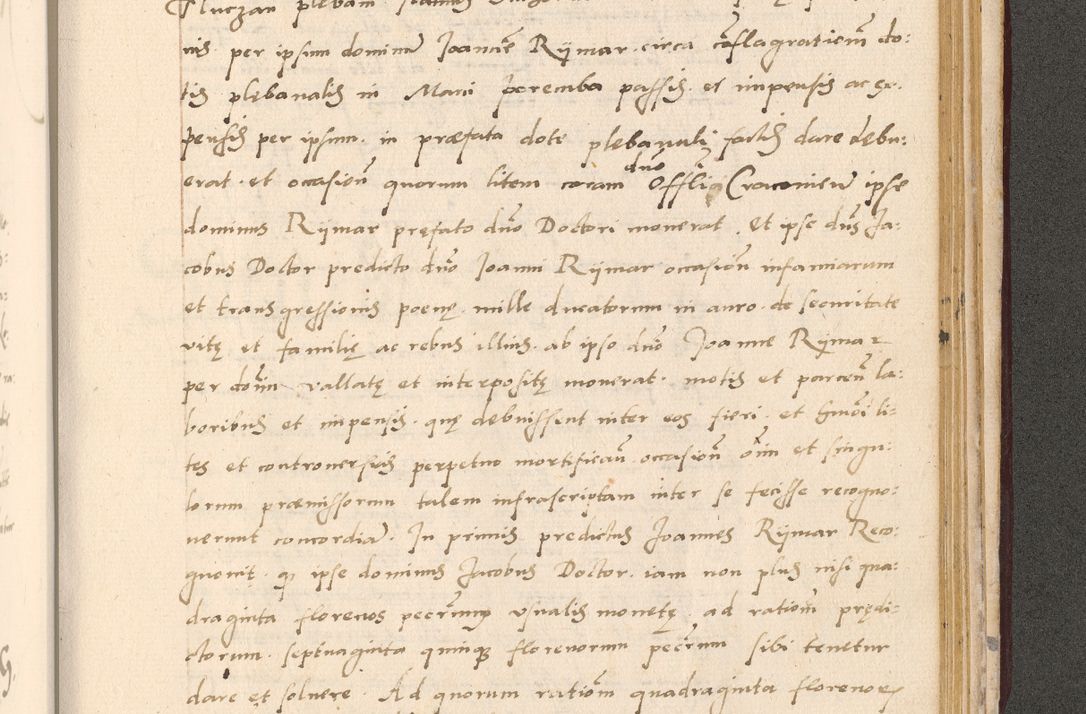 nis per ipsum dominum Joannem Rijmar circa conflagrationem do:
tis plebanalis in Maci Poremba passis et impensis ac ex:
pensis per ipsum in præfata dote plebanali factis dare debu:
erat et occasion quorum litem coram duo Offli Cracovien ipse
dominus Rijmar pręfato dno Doctori moverat. Et ipse dns Ja:
cobus Doctor predicto dno Joanni Rijmar occasion infamiarum
et transgressionis poenę mille ducatorum in auro de securitate
vitę et familię ac rebus illius ab ipso dno Joanne Rijmar
per donm vallatę et interpositę moverat motis et parcen la:
boribus et impensis quę debuissent inter eos fieri et hmoi li:
tes et controversiis perpetuo mortifican occasion oim et singu:
lorum præmissorum talem infrascriptam inter se fecisse recogno:
verunt concordia. In primis predictus Joannes Rijmar Reco:
gnovit q ipse dominus Jacobus Doctor iam non plus nisi qua:
draginta florenos pecrumq usualis monetę ad rationm prędi:
ctorum septuaginta quinq florenorum pecrum sibi tenetur
dare et solvere. Ad quorum rationm quadraginta florenor